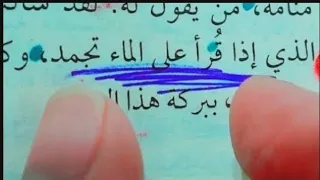 منامه، من يقول له: لقد سألت
الذي إذا قُرأ على الماء تجمد، وكـ
، ببركة هذا الـ